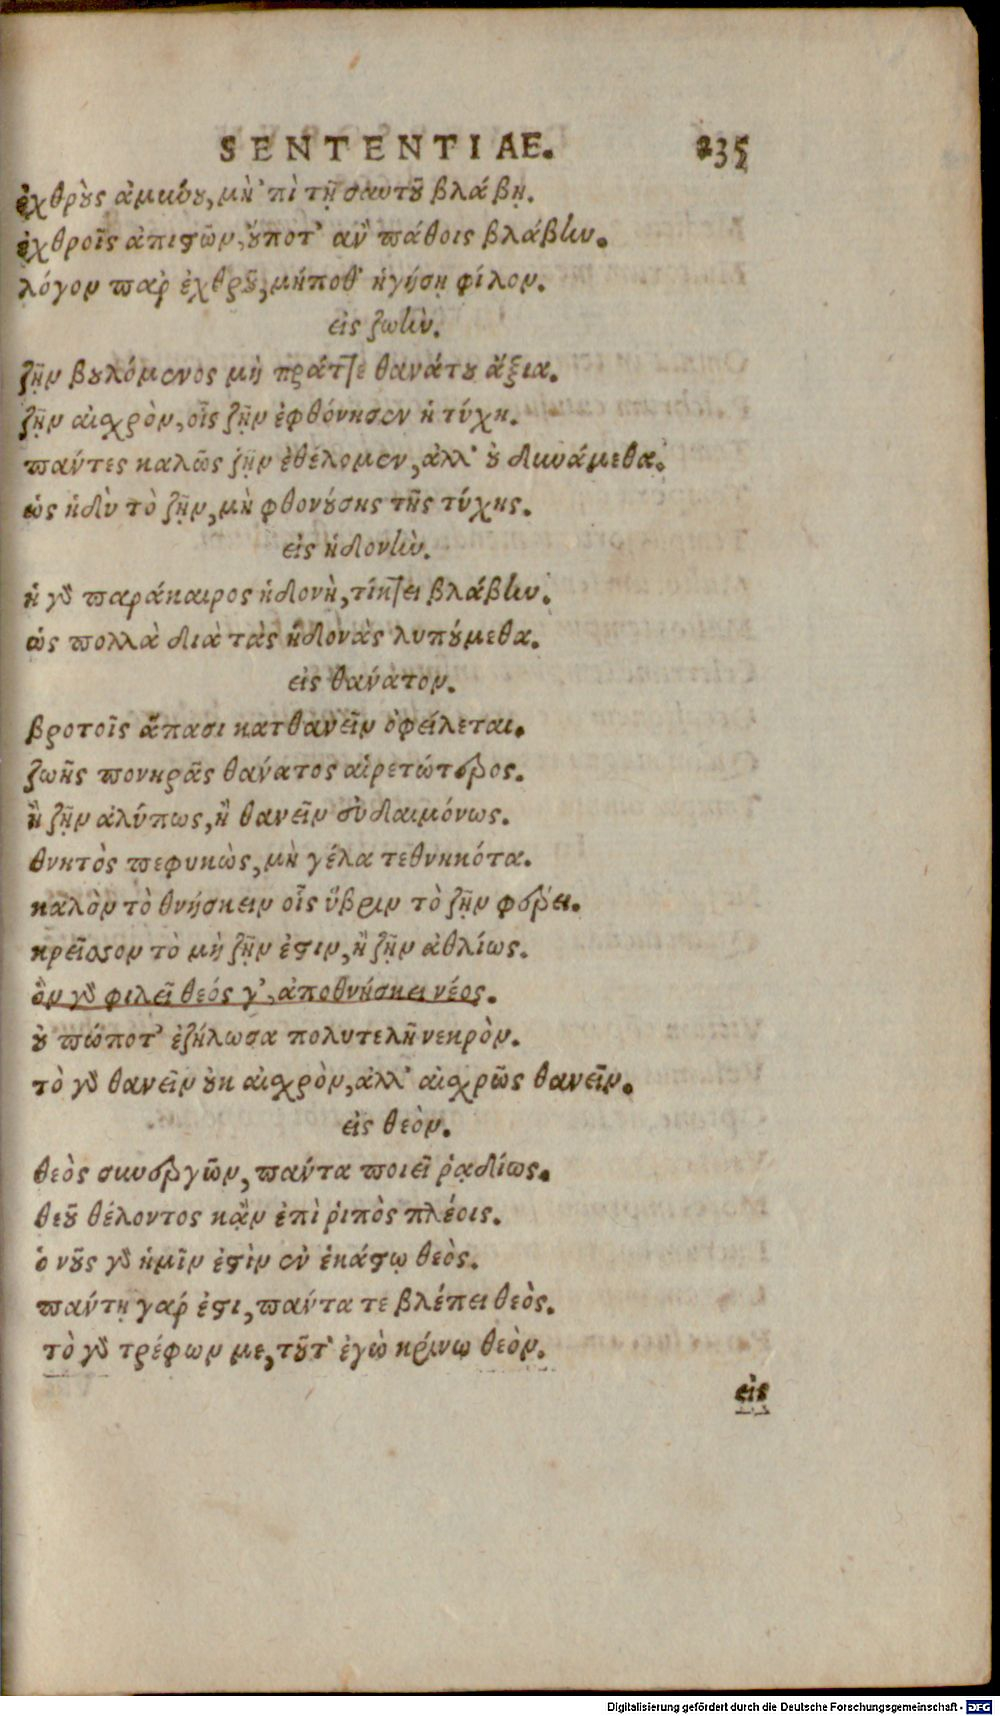 SENTENTIAE. 235
ἐχθρȣ̀ς ἀμύνȣ, μὴ ’πὶ τῇ σαυτȣ͂ βλάβῃ.
ἐχθροῖς ἀπιϛῶν, ȣ̓́ποτ’ ἂν πάθοις βλάβην.
λόγον παρ’ ἐχθρȣ͂, μήποθ’ ἡγήσῃ φίλον.
εἰς ζωὴν.
ζῇν βȣλόμενος μὴ πράττε θανάτȣ ἄξια.
ζῇν αἰχρὸν, οἷς ζῇν ἐφθόνησεν ἡ τύχη.
πάντες καλῶς ζῇν ἐθέλομεν, ἀλλ’ ȣ̓ δυνάμεθα.
ὡς ἡδὺ τὸ ζῇν, μὴ φθονȣ́σης τῆς τύχης.
εἰς ἡδονὴν.
ἡ γὸ παράκαιρος ἡδονὴ, τίκτει βλάβην.
ὡς πολλὰ διὰ τὰς ἡδονὰς λυπȣ́μεθα.
εἰς θάνατον.
βροτοῖς ἅπασι κατθανεῖν ὀφείλεται.
ζωῆς πονηρᾶς θάνατος αἱρετώτερος.
ἢ ζῇν ἀλύπως, ἢ θανεῖν εὐδαιμόνως.
θνητὸς πεφυκὼς, μὴ γέλα τεθνηκότα.
καλὸν τὸ θνήσκειν οἷς ὕβριν τὸ ζῇν φέρει.
κρεῖσσον τὸ μὴ ζῇν ἐϛιν, ἢ ζῇν ἀθλίως.
ὃν γὸ φιλεῖ θεός γ’, ἀποθνήσκει νέος.
ȣ̓ πώποτ’ ἐζήλωσα πολυτελῆ νεκρὸν.
τὸ γὸ θανεῖν ȣ̓κ αἰχρὸν, ἀλλ’ αἰχρῶς θανεῖν.
εἰς θεὸν.
θεὸς συνεργῶν, πάντα ποιεῖ ῥᾳδίως.
θεȣ͂ θέλοντος κᾂν ἐπὶ ῥιπὸς πλέοις.
ὁ νȣ͂ς γὸ ἡμῖν ἐϛὶν ἐν ἑκάϛῳ θεὸς.
πάντῃ γάρ ἐϛι, πάντα τε βλέπει θεὸς.
τὸ γὸ τρέφων με, τȣ͂τ’ ἐγὼ κρίνω θεὸν.
εἰς
Digitalisierung gefördert durch die Deutsche Forschungsgemeinschaft - DFG